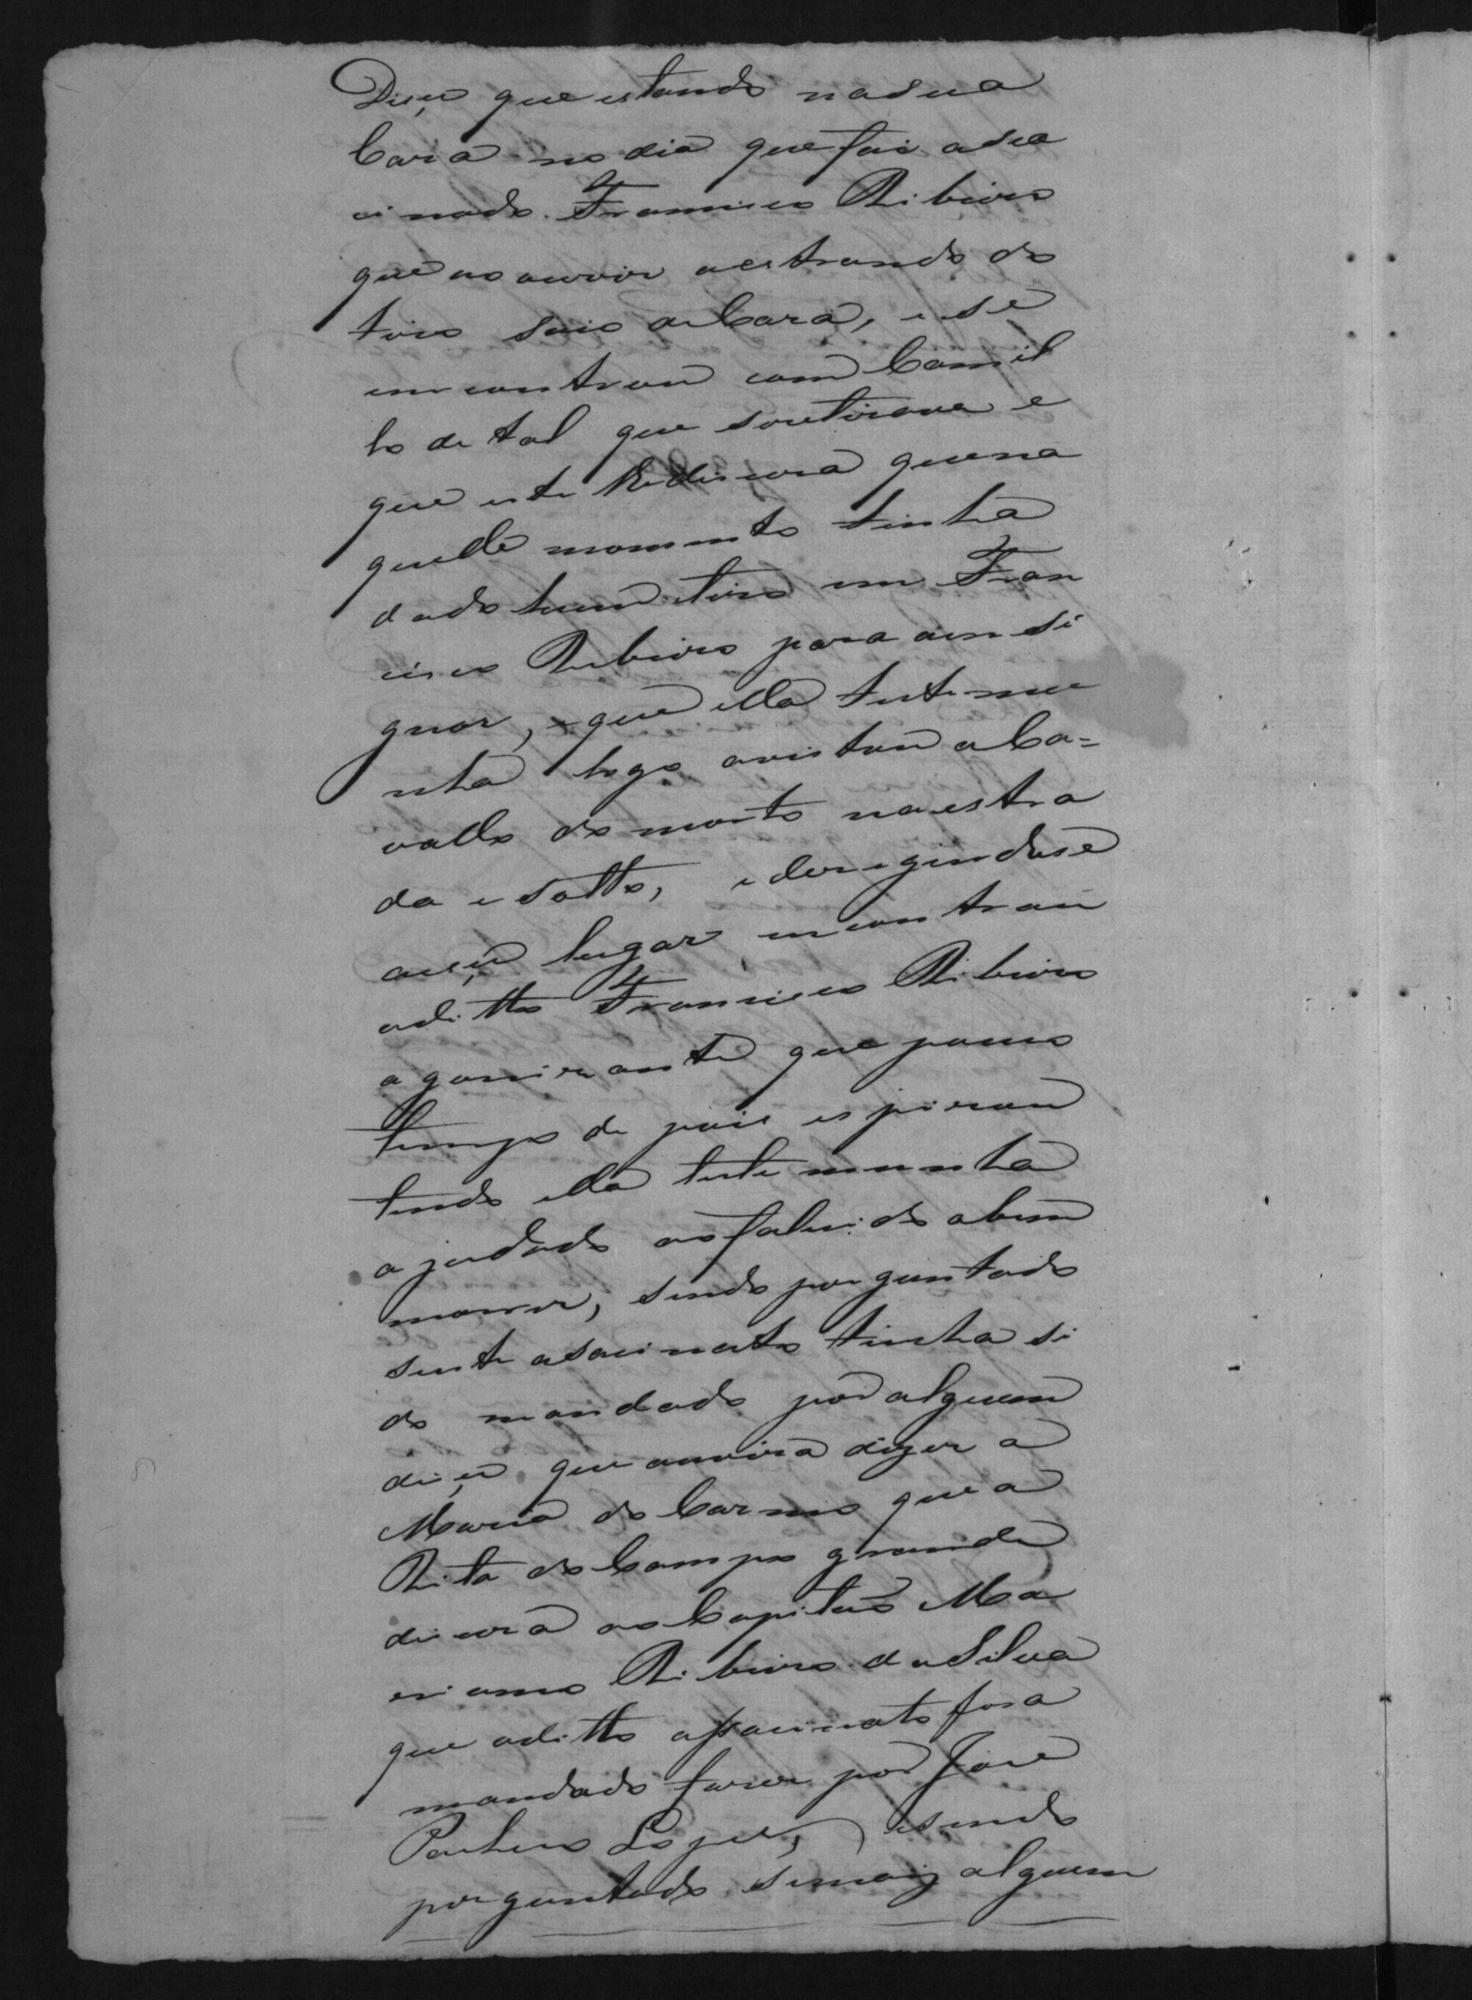 Diçeu que estando na sua
Caza no dia que foi asca
cinado Francisco Ribeiro
que ao ouvir oestrando do
tiro saio a Caza, e se
emcontrou com Camil
lo de tal que soretirava e
que este lhe dicera que na
quelle momento tinha
dado hum tiro em Fran
cisco Ribeiro para o insi
gnar, e que ella testemu
nha logo avistou o Ca=
vallo do morto na estra
da e solto, e deregindose
aseu lugar, encontrou
oditto Francisco Ribeiro
agonizante que pouco
tempo de pois espirou
tendo ella testemunha
ajudado ao falecido abem
morrer, sendo porguntado
sente asacinato tinha si
do mandado por alguem
diçeu que ouvira dizer a
Maria do Carmo que a
Rita do Campo grande
dicera ao Capitão Ma
ciano Ribeiro da Silva
que aditto assacinato fora
mandado fazer por José
Pacheco Lopes, e sendo
porguntado se maiz alguem